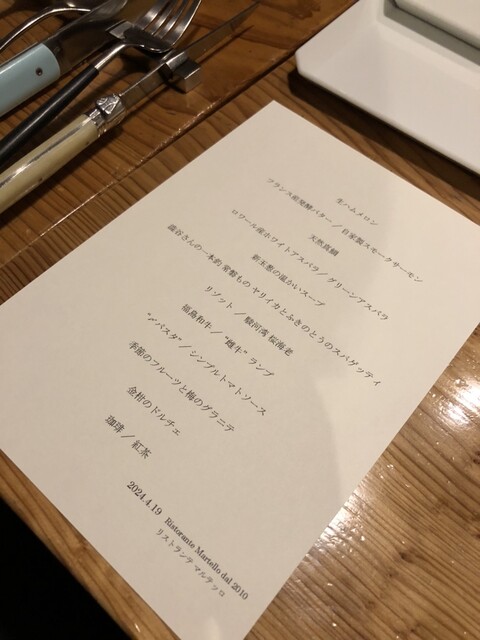 生ハムメロン
フランス産発酵バター / 自家製スモークサーモン
天然真鯛
ロワール産ホワイトアスパラ / グリーンアスパラ
新玉葱の温かいスープ
さんの一本釣 常磐もの ヤリイカとふきのとうのスパゲッティ
リゾット / 駿河湾 桜海老
福島和牛 / "雌牛" ランプ
"〆パスタ" / シンプルトマトソース
季節のフルーツと梅のグラニテ
金柑のドルチェ
珈琲 / 紅茶
2024.4.19
Ristorante Martello dal 2010
リストランテ マルテッロ